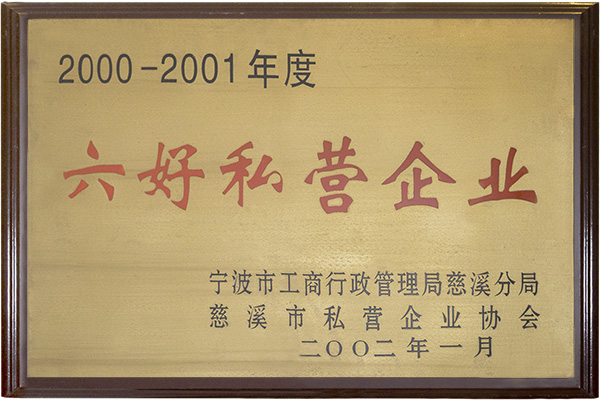 2000-2001年度
六好私营企业
宁波市工商行政管理局慈溪分局
慈溪市私营企业协会
二〇〇二年一月